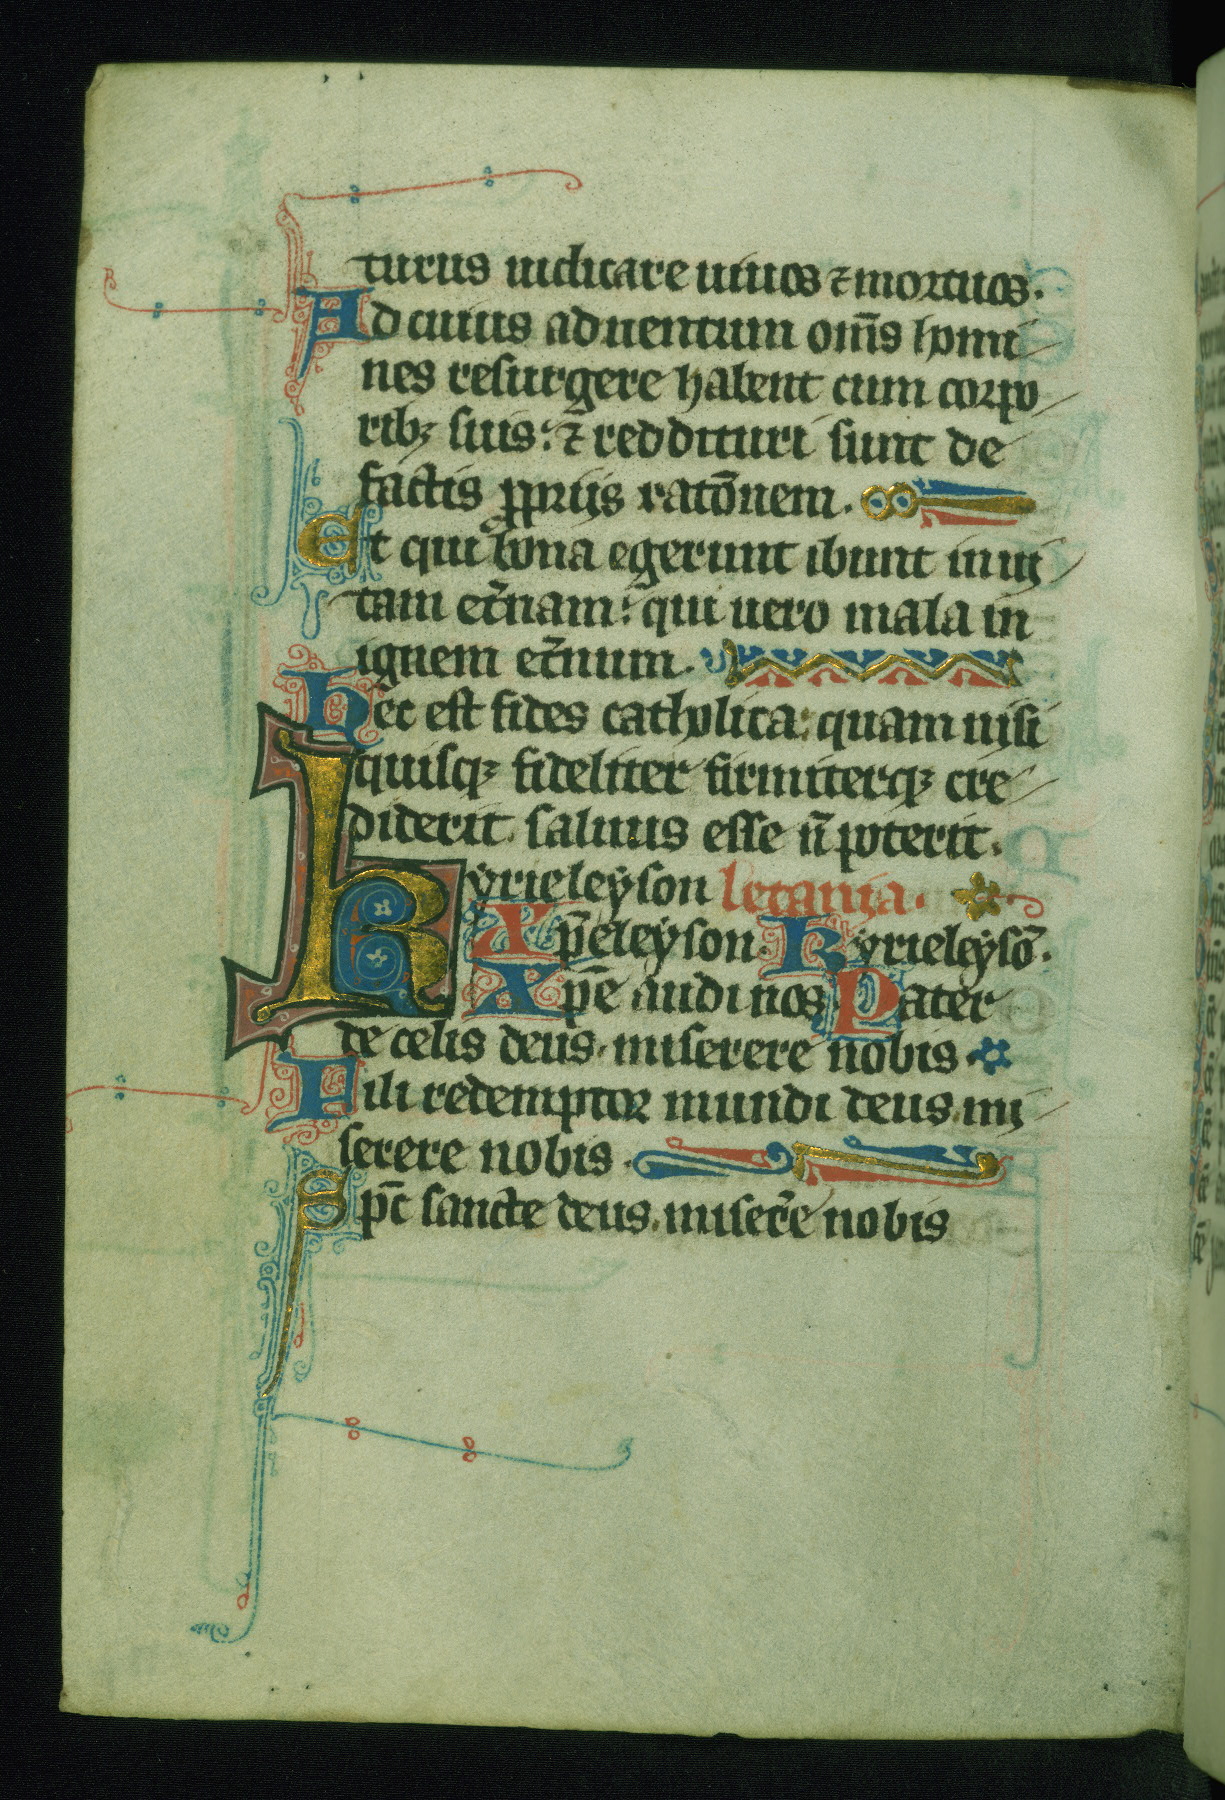 turus iudicare uiuos ⁊ mortuos.
Ad cuius aduentum om̄s homi
nes resurgere habent cum corpo
rib; suis: ⁊ reddituri sunt de
factis pprijs ratōnem.
Et qui bona egerunt ibunt in ui
tam et̄nam: qui uero mala in
ignem et̄num.
Hec est fides catholica: quam nisi
quisq; fideliter firmiterq; cre
diderit. saluus esse n̄ poterit.
Kyrieleyson letania.
Xp̄eleyson. Kyrieleysō.
Xp̄e audi nos Pater
de celis deus. miserere nobis.
Fili redemptor mundi deus. mi
serere nobis.
Sp̄c sancte deus. miser̄e nobis